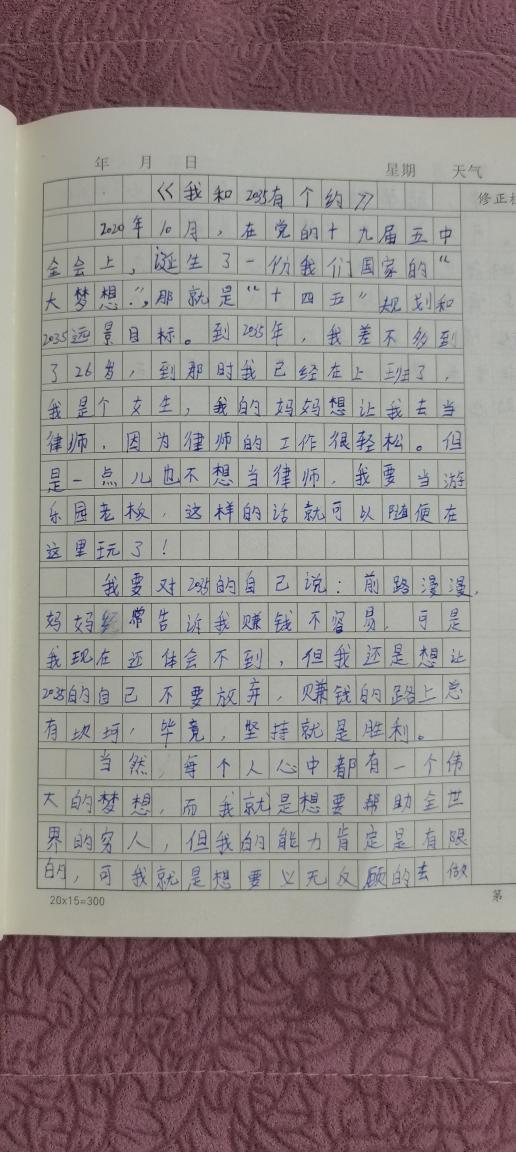 年 月 日 星期 天气
《我和2035有个约》 修正栏
2020年10月，在党的十九届五中
全会上，诞生了一份我们国家的“
大梦想”，那就是“十四五”规划和
2035远景目标。到2035年，我差不多到
了26岁，到那时我已经在上班了，
我是个女生，我的妈妈想让我去当
律师，因为律师的工作很轻松。但
是一点儿也不想当律师，我要当游
乐园老板，这样的话就可以随便在
这里玩了！
我要对2035的自己说：前路漫漫，
妈妈经常告诉我赚钱不容易，可是
我现在还体会不到，但我还是想让
2035的自己不要放弃，赚钱的路上总
有坎坷，毕竟，坚持就是胜利。
当然，每个人心中都有一个伟
大的梦想，而我就是想要帮助全世
界的穷人，但我的能力肯定是有限
的，可我就是想要义无反顾的去做
20×15=300 第